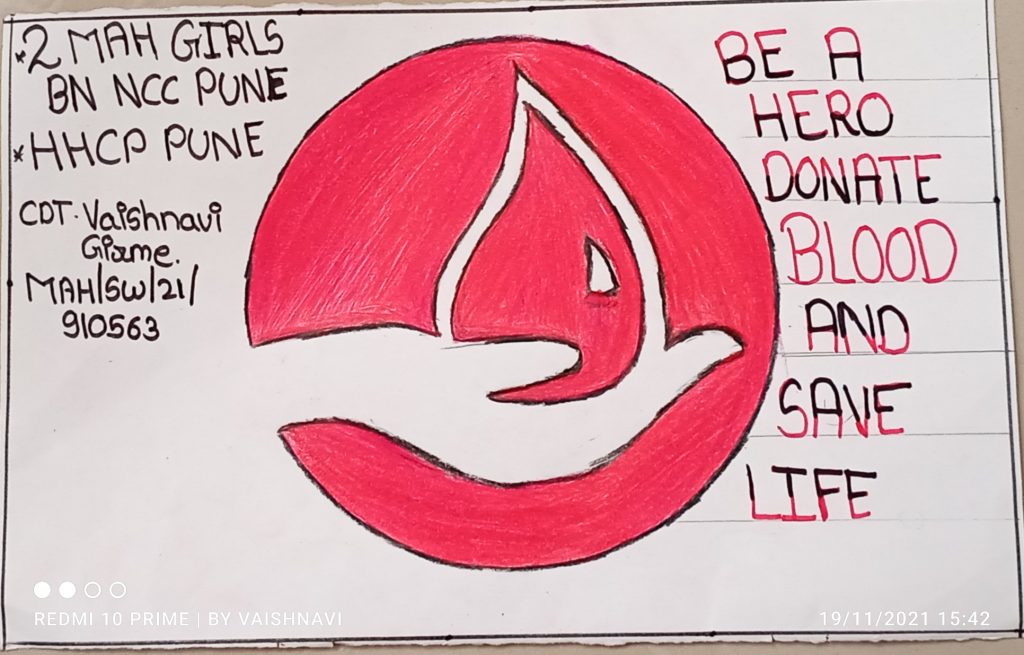 *2 MAH GIRLS
BN NCC PUNE
*HHCP PUNE
CDT. Vaishnavi
Girme.
MAH/SW/21/
910563
BE A
HERO
DONATE
BLOOD
AND
SAVE
LIFE
REDMI 10 PRIME | BY VAISHNAVI
19/11/2021 15:42